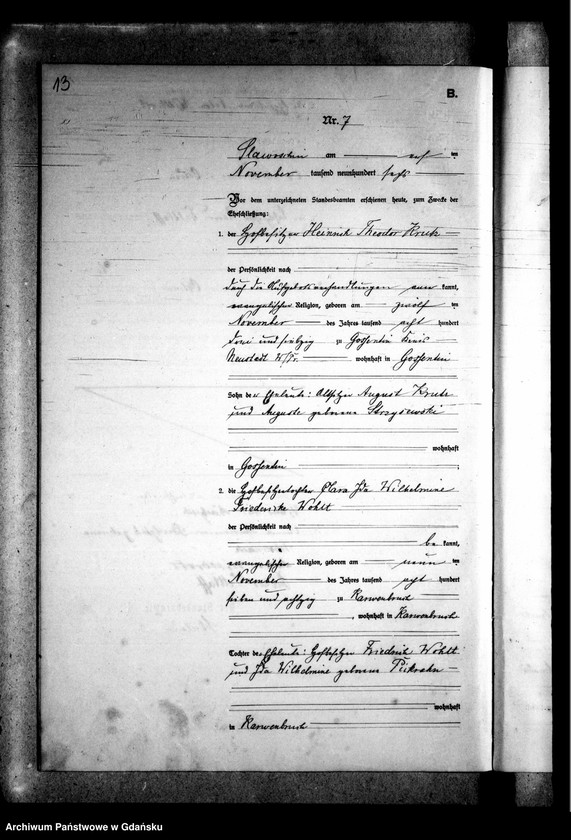 13
B.
Nr. 7
Slawoschin am elf ten
November tausend neunhundert sechs
Vor dem unterzeichneten Standesbeamten erschienen heute, zum Zwecke der
Eheschließung:
1. der Hofbesitzer Heinrich Theodor
der Persönlichkeit nach
durch die Aufgebotsverhandlungen kannt,
evangelischer Religion, geboren am zwölf ten
November des Jahres tausend acht hundert
drei und siebzig zu Gossentin Kreis
Neustadt W/Pr. wohnhaft in Gossentin
Sohn der Eheleute: Altsitzer August
und Auguste geborene
wohnhaft
in Gossentin
2. die Hofbesitzertochter Clara Ida Wilhelmine
Friederike Wohlt
der Persönlichkeit nach
be kannt,
evangelischer Religion, geboren am neun ten
November des Jahres tausend acht hundert
sieben und achtzig zu Karwenbruch
, wohnhaft in Karwenbruch
Tochter der Eheleute: Hofbesitzer Friedrich Wohlt
und Ida Wilhelmine geborene
wohnhaft
in Karwenbruch
Archiwum Państwowe w Gdańsku